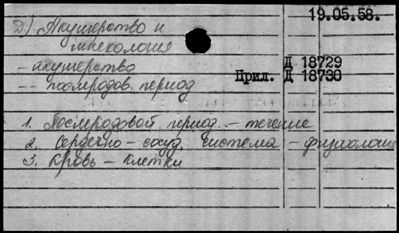 19.05.58.
Д) Акушерство и
гинекология
– акушерство
Д 18729
Прил. Д 18730
-- послеродов. период
1. Послеродовой период – течение
2. Сердечно – сосуд. система – физиология
3. Кровь – клетки